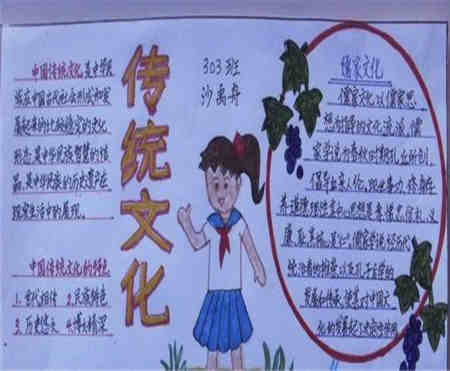 中国传统文化,是中华民
族在中国古代社会形成和发
展起来的比较稳定的文化
形态,是中华民族智慧的结
晶,是中华民族的历史遗产在
现实生活中的展现。
中国传统文化的特色
1.世代相传 2.民族特色
3.历史悠久 4.博大精深
传统文化
303班
沙禹舟
儒家文化
儒家文化,以儒家思
想为指导的文化流派,儒
家学说为春秋时期孔丘所创,
倡导血亲人伦、现世事功、修身存
养、道德理性,其中心思想是
儒家学说经历代
统治者的推崇,以及孔子后学的
发展和传承,使其对中国文
化的发展起了决定性作用